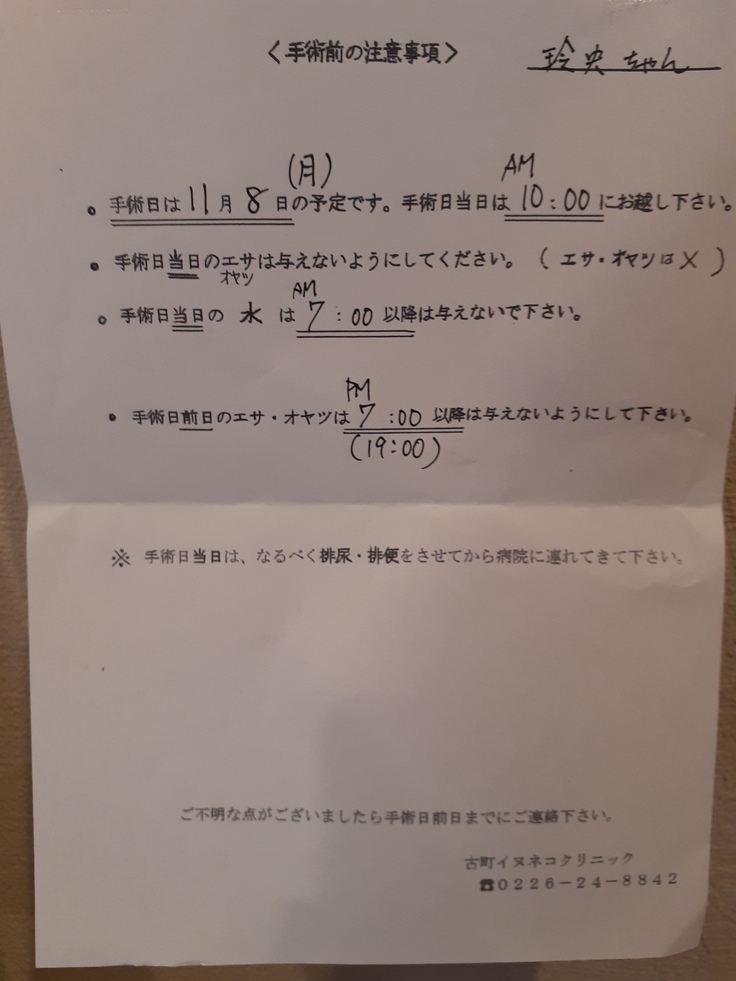 〈手術前の注意事項〉 玲央ちゃん
(月) AM
。手術日は11月8日の予定です。手術日当日は10:00にお越し下さい。
・手術日当日のエサは与えないようにしてください。(エサ・オヤツは×)
オヤツ
AM
。手術日当日の 水 は 7:00 以降は与えないで下さい。
PM
・手術日前日のエサ・オヤツは 7:00 以降は与えないようにして下さい。
(19:00)
※ 手術日当日は、なるべく排尿・排便をさせてから病院に連れてきて下さい。
ご不明な点がございましたら手術日前日までにご連絡下さい。
古町イヌネコクリニック
☎0226-24-8842